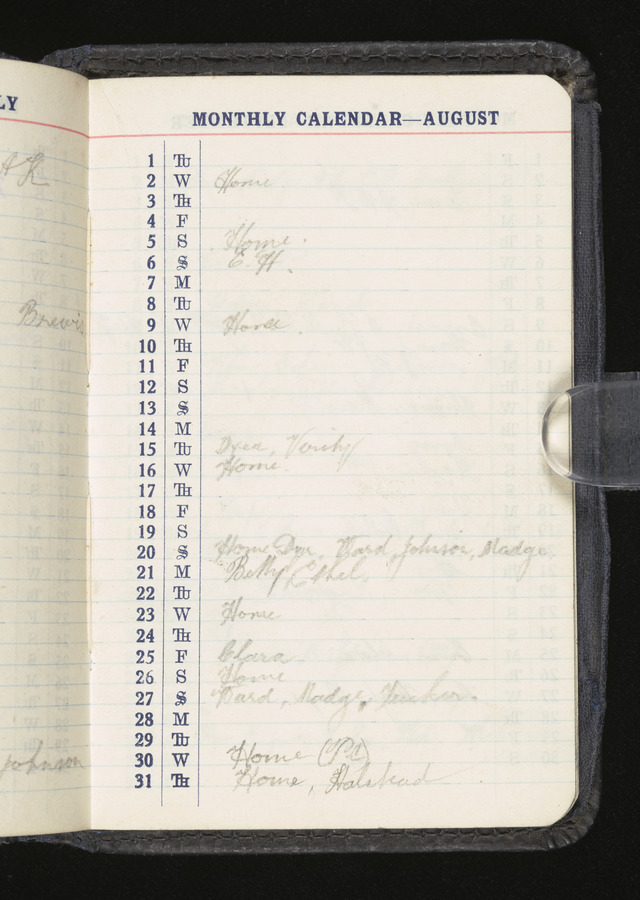 LY
A K
Brewis
Johnson
MONTHLY CALENDAR—AUGUST
1 Tu
2 W Home
3 Th
4 F
5 S Home.
6 S E. H.
7 M
8 Tu
9 W Home.
10 Th
11 F
12 S
13 S
14 M
15 Tu Dyer, Verity
16 W Home.
17 Th
18 F
19 S
20 S Home, Dyer, Ward, Johnson, Madge
21 M Betty, Ethel.
22 Tu
23 W Home
24 Th
25 F Clara
26 S Home
27 S Ward, Madge,
28 M
29 Tu
30 W Home
31 Th Home, Halstead